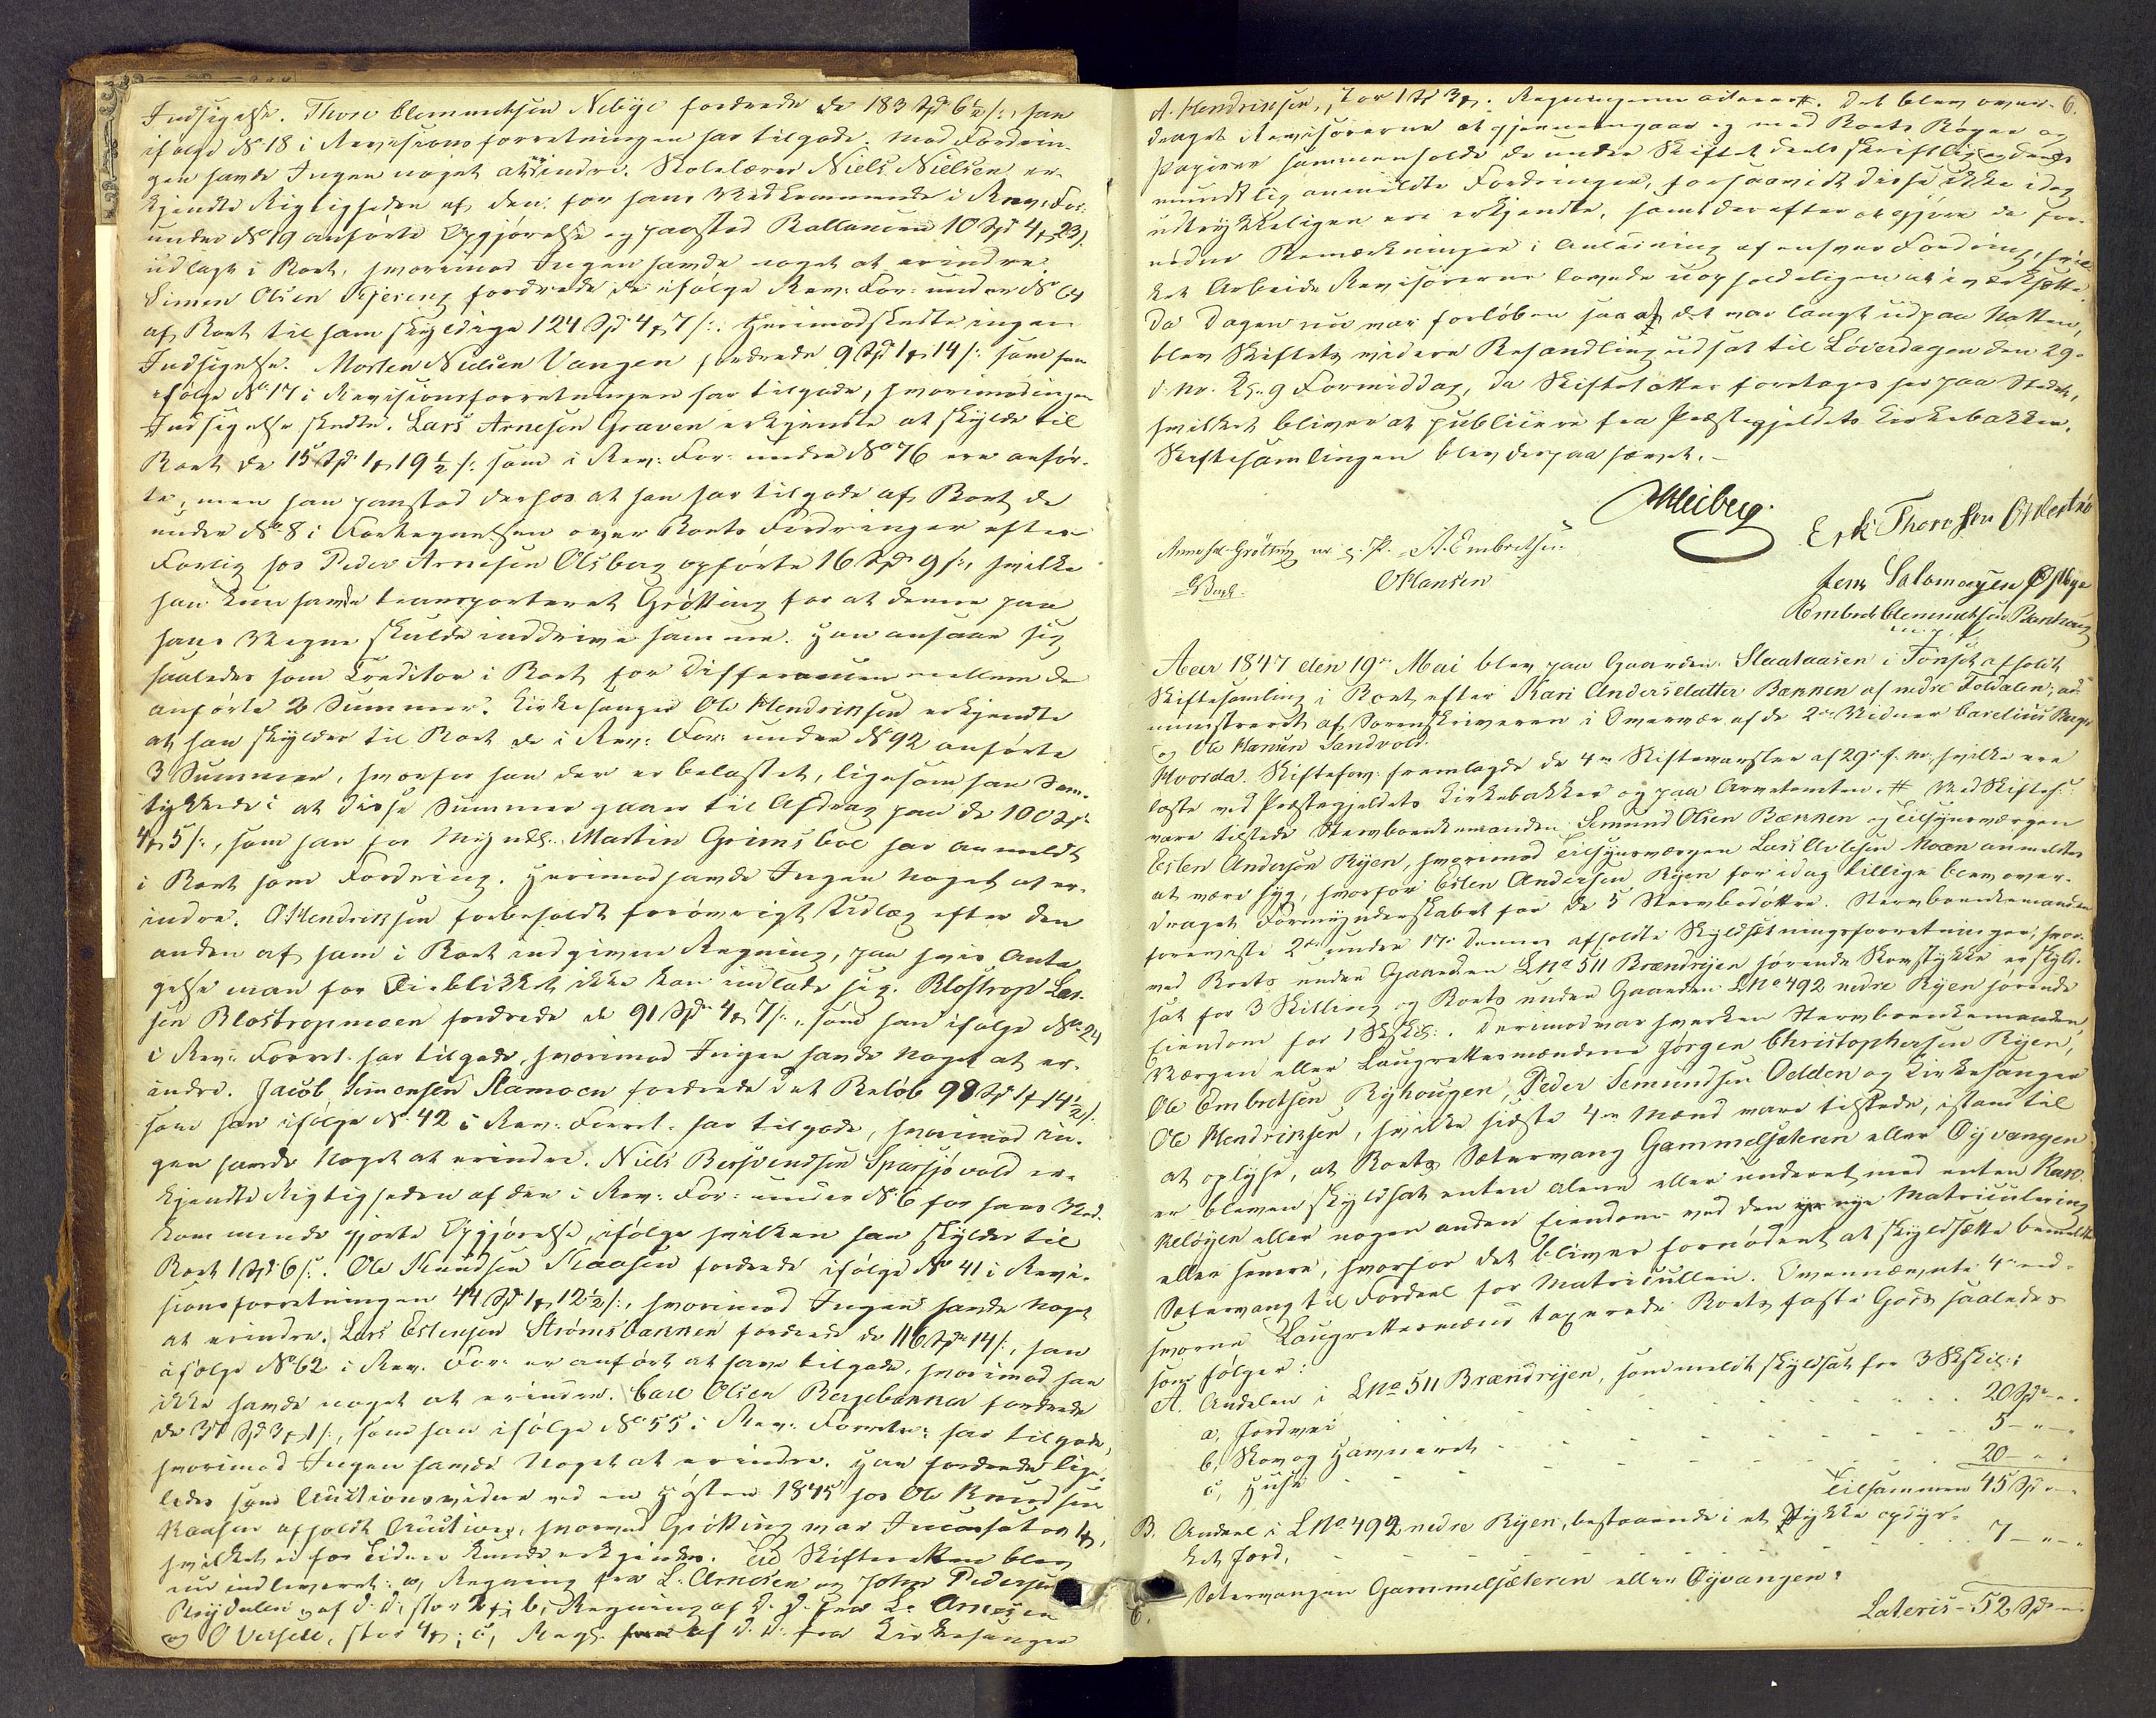 Indsigelse. Thore Clemmetsen Nebÿe fordrede de 183 Spd 6½ s:, han
ifølge No 18 i Revisionsforretningen har tilgode; mod Fordrin-
gen havde Ingen noget at erindre. Skolelærer Niels Nielsen er-
kjendte Rigtigheden af den for hans Vedkommende i Rev: For:
under No 19 anførte Opgjørelse og paastod Ballancen 10 Spd 4 23
udlagt i Boet, hvorimod Ingen havde noget at erindre.
Simen Olsen fordrede de ifølge Rev: For: under No 64
af Boet til ham skyldige 124 Spd 4 7 s:. Herimod skedte ingen
Indsigelse. Morten Nielsen Vangen fordrede 9 Spd 1 14 s: som han
ifølge No 17 i Revisionsforretningen har tilgode, hvorimod ingen
Indsigelse skedte. Lars Arnesen Graven erkjendte at skylde til
Boet de 15 Spd 1 19½ s: som i Rev: For: under No 76 ere anfør-
te, men han paastod derhos at han har tilgode af Boet de
under No 8 i Fortegnelsen over Boets Fordringer efter
Forlig hos Peder Arnesen Olsberg opførte 16 Spd 9 s:, hvilke
han kun havde transporteret Grøtting for at denne paa
hans Vegne skulde inddrive samme. Han ansaae sig
saaledes som Creditor i Boet for Differencen mellem de
anførte 2 Summer. Kirkesanger Ole Hendriksen erkjendte
at han skylder til Boet de i Rev: For: under No 92 anførte
3 Summer, hvorfor han der er belastet, ligesom han Sam-
tykkede i at disse Summer gaaer til Afdrag paa de 100 Spd
4 5 s:, som han for Martin Grimsboe har anmeldt
i Boet som Fordring. Herimod havde Ingen noget at er-
indre. O Hendriksen forbeholdt forøvrigt Udlæg efter den
anden af ham i Boet indgivne Regning, paa hvis Anta-
gelse man for Øieblikket ikke kan indlade sig. Blostrop Lar-
sen Blostropmoen fordrede de 91 Spd 4 7 s:, som han ifølge No 24
i Rev: Forret. har tilgode, hvorimod Ingen havde noget at er-
indre. Jacob Simensen Stamoen fordrede det Beløb 98 Spd 1 14½ s:
som han ifølge No 42 i Rev: Forret. har tilgode, hvorimod In-
gen havde noget at erindre. Niels Bersvendsen Sparsjøvold er-
kjendte Rigtigheden af den i Rev: For: under No 6 for hans Ved-
kommende gjorte Opgjørelse, ifølge hvilken han skylder til
Boet 1 Spd 6 s:. Ole Knudsen Kaasen fordrede ifølge No 41 i Revi-
sionsforretningen 44 Spd 1 12½ s:, hvorimod Ingen havde noget
at erindre. Lars Estensen Strømsbakken fordrede de 116 Spd 14 s:, han
ifølge No 62 i Rev. For: er anført at have tilgode, hvorimod han
ikke havde noget at erindre. Carl Olsen fordrede
de 37 Spd 3 1 s:, som han ifølge No 55 i Rev: Forretn: har tilgode,
hvorimod Ingen havde noget at erindre. Han fordrede lige-
ledes som Auctionsvidne ved en Høsten 1845 hos Ole Knudsen
Kaasen afholdt Auction, hvorved Grøtting var Incassator 1,
hvilket ei for Tiden kunde erkjendes. Til Skifteretten blev
nu indleveret: a, Regning fra L. Arnesen og John Pedersen
af d. d. stor 2; b, Regning af d. d. fra L. Arnesen
og O, stor 4; c, Regn. af d. d. fra Kirkesanger
6.
A. Hendriksen, stor 1 Spd 3. Regningerne. Det blev over-
draget Revisorerne at gjennemgaae og med Boets Bøger og
Papirer sammenholde de under Skiftet deels skriftlig og deels
mundtlig anmeldte Fordringer, forsaavidt disse ikke idag
udtrykkeligen ere erkjendte, samt derefter at gjøre de for-
nødne Bemærkninger i Anledning af enhver Fordring, hvil-
ket Arbeide Revisorerne lovede uopholdeligen at iværksætte.
Da Dagen nu var forløben saa at det var langt udpaa Natten,
blev Skiftets videre Behandling udsat til Løverdagen den 29.
d. M. Kl. 9 Formiddag, da Skiftet atter foretages her paa Stedet,
hvilket bliver at publicere fra Præstegjeldets Kirkebakken.
Skiftesamlingen blev derpaa hævet.
Meiberg.
Erk Thoresen
Grøtting A. Embretsen
OHansen
Jens Salomonsen
Embret Clemmetsen
m. p. P.
Aar 1847 den 19de Mai blev paa Gaarden Slaataasen i Tønset afholdt
Skiftesamling i Boet efter Kari Andersdatter Bakken af nedre Foldalen; ad-
ministreret af Sorenskriveren i Overvær af de 2de Vidner Carelius Berge
og Ole Hansen Sandvold.
Hvorda: Skifteforv: fremlagde de 4re Skiftevarsler af 29. f. M. hvilke ere
læste ved Præstegjeldets Kirkebakker og paa Arvetomten. # Ved Skiftes:
vare tilstede Stervboenkemanden Semund Olsen Bakken og Tilsynsværgen
Esten Andersen Ryen, hvorimod Tilsynsværgen Lars Moan anmeldtes
at være syg, hvorfor Esten Andersen Ryen for idag tillige blev over-
draget Formynderskabet for de 5 Stervbodøttre. Stervboenkemanden
foreviste 2de under 17. Dennes afholdte Skyldsætningsforretninger, hvor-
ved Boets under Gaarden LNo 511 Brændryen hørende Skovstykke er skyld-
sat for 3 Skilling og Boets under Gaarden LNo 492 nedre Ryen hørende
Eiendom for 1 Skskil:. Derimod var hverken Stervboenkemanden,
Værgen eller Laugrettesmændene Jørgen Christophersen Ryen,
Ole Embretsen Ryhougen, Peder Semundsen Oelden og Kirkesanger
Ole Hendriksen, hvilke sidste 4re Mænd vare tilstede, istand til
at oplyse, at Boets Sætervang Gammelsæteren eller Øyvangen
er bleven skyldsat enten alene eller underet med enten Ran-
keløyen eller nogen anden Eiendom ved den nye Matriculering
eller senere, hvorfor det bliver fornødent at skyldsætte bemeldte
Sætervang til Fordeel for Matricullen. Ovennævnte 4re ed-
svorne Laugrettesmænd taxerede Boets faste Gods saaledes
som følger:
A. Andelen i LNo 511 Brændryen, som meldt skyldsat for 3 Skskil:
a, Jordvei 20 Spd - "
b, Skov og Havneret 5 - " - "
c, Huse 20 - " - "
Tilsammen 45 Spd "
B. Andeel i LNo 492 nedre Ryen, bestaaende i et Stykke opdyr-
ket Jord, 7 - " - "
C. Sætervangen Gammelsæteren eller Øyvangen:
Lateris - 52 Spd